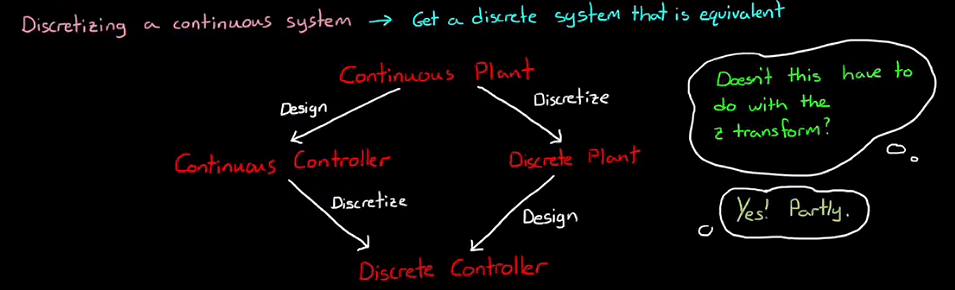 Discretizing a continuous system → Get a discrete system that is equivalent
Continuous Plant
Design
Discretize
Continuous Controller
Discrete Plant
Discretize
Design
Discrete Controller
Doesn't this have to
do with the
z transform?
Yes! Partly.